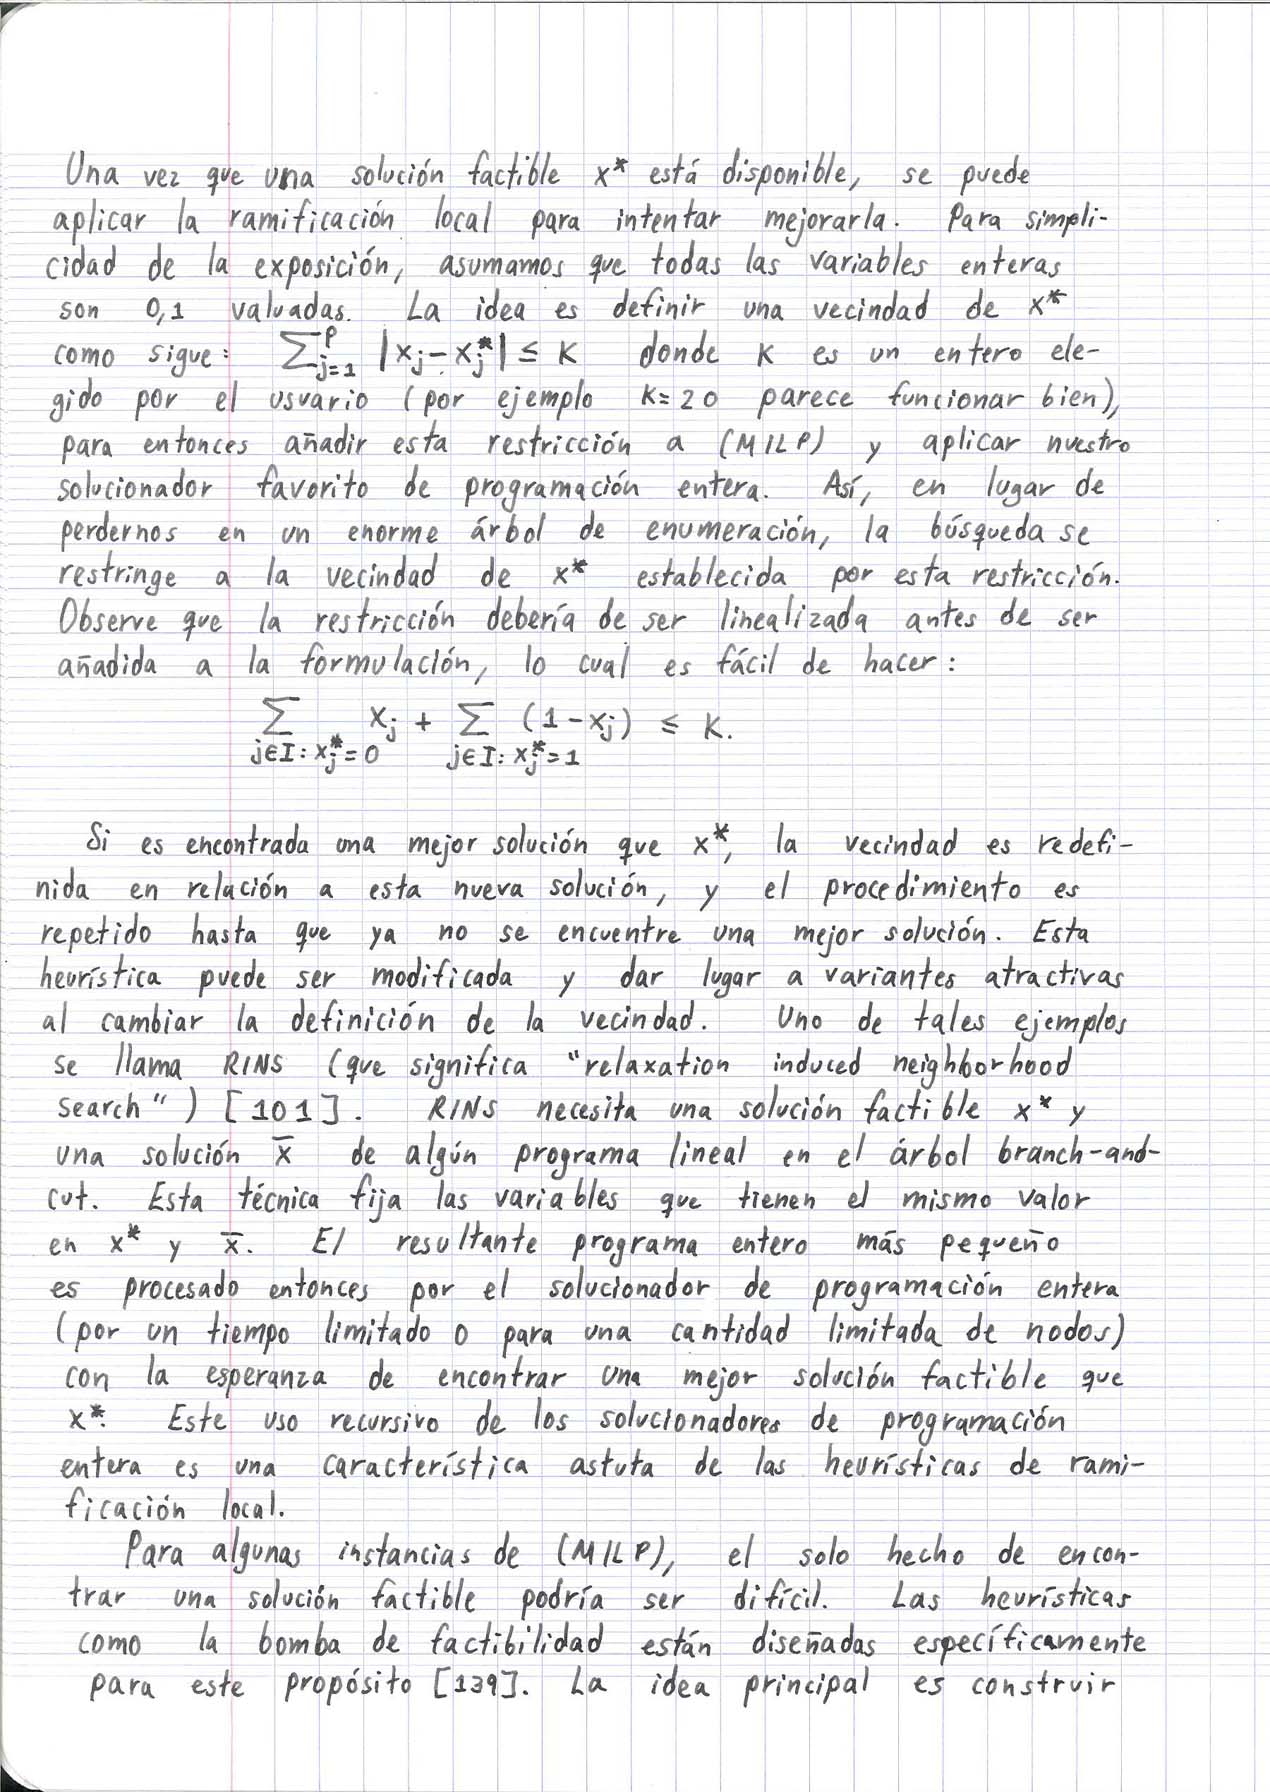 Una vez que una solución factible x* está disponible, se puede
aplicar la ramificación local para intentar mejorarla. Para simpli-
cidad de la exposición, asumamos que todas las variables enteras
son 0,1 valuadas. La idea es definir una vecindad de x*
como sigue: ∑_{j=1}^{p} |x_j - x_j^*| ≤ K donde K es un entero ele-
gido por el usuario (por ejemplo K=20 parece funcionar bien),
para entonces añadir esta restricción a (MILP) y aplicar nuestro
solucionador favorito de programación entera. Así, en lugar de
perdernos en un enorme árbol de enumeración, la búsqueda se
restringe a la vecindad de x* establecida por esta restricción.
Observe que la restricción debería de ser linealizada antes de ser
añadida a la formulación, lo cual es fácil de hacer:
∑_{j∈I: x_j^*=0} x_j + ∑_{j∈I: x_j^*=1} (1-x_j) ≤ K.
Si es encontrada una mejor solución que x*, la vecindad es redefi-
nida en relación a esta nueva solución, y el procedimiento es
repetido hasta que ya no se encuentre una mejor solución. Esta
heurística puede ser modificada y dar lugar a variantes atractivas
al cambiar la definición de la vecindad. Uno de tales ejemplos
se llama RINS (que significa "relaxation induced neighborhood
search") [101]. RINS necesita una solución factible x* y
una solución x̄ de algún programa lineal en el árbol branch-and-
cut. Esta técnica fija las variables que tienen el mismo valor
en x* y x̄. El resultante programa entero más pequeño
es procesado entonces por el solucionador de programación entera
(por un tiempo limitado o para una cantidad limitada de nodos)
con la esperanza de encontrar una mejor solución factible que
x*. Este uso recursivo de los solucionadores de programación
entera es una característica astuta de las heurísticas de rami-
ficación local.
Para algunas instancias de (MILP), el solo hecho de encon-
trar una solución factible podría ser difícil. Las heurísticas
como la bomba de factibilidad están diseñadas específicamente
para este propósito [139]. La idea principal es construir